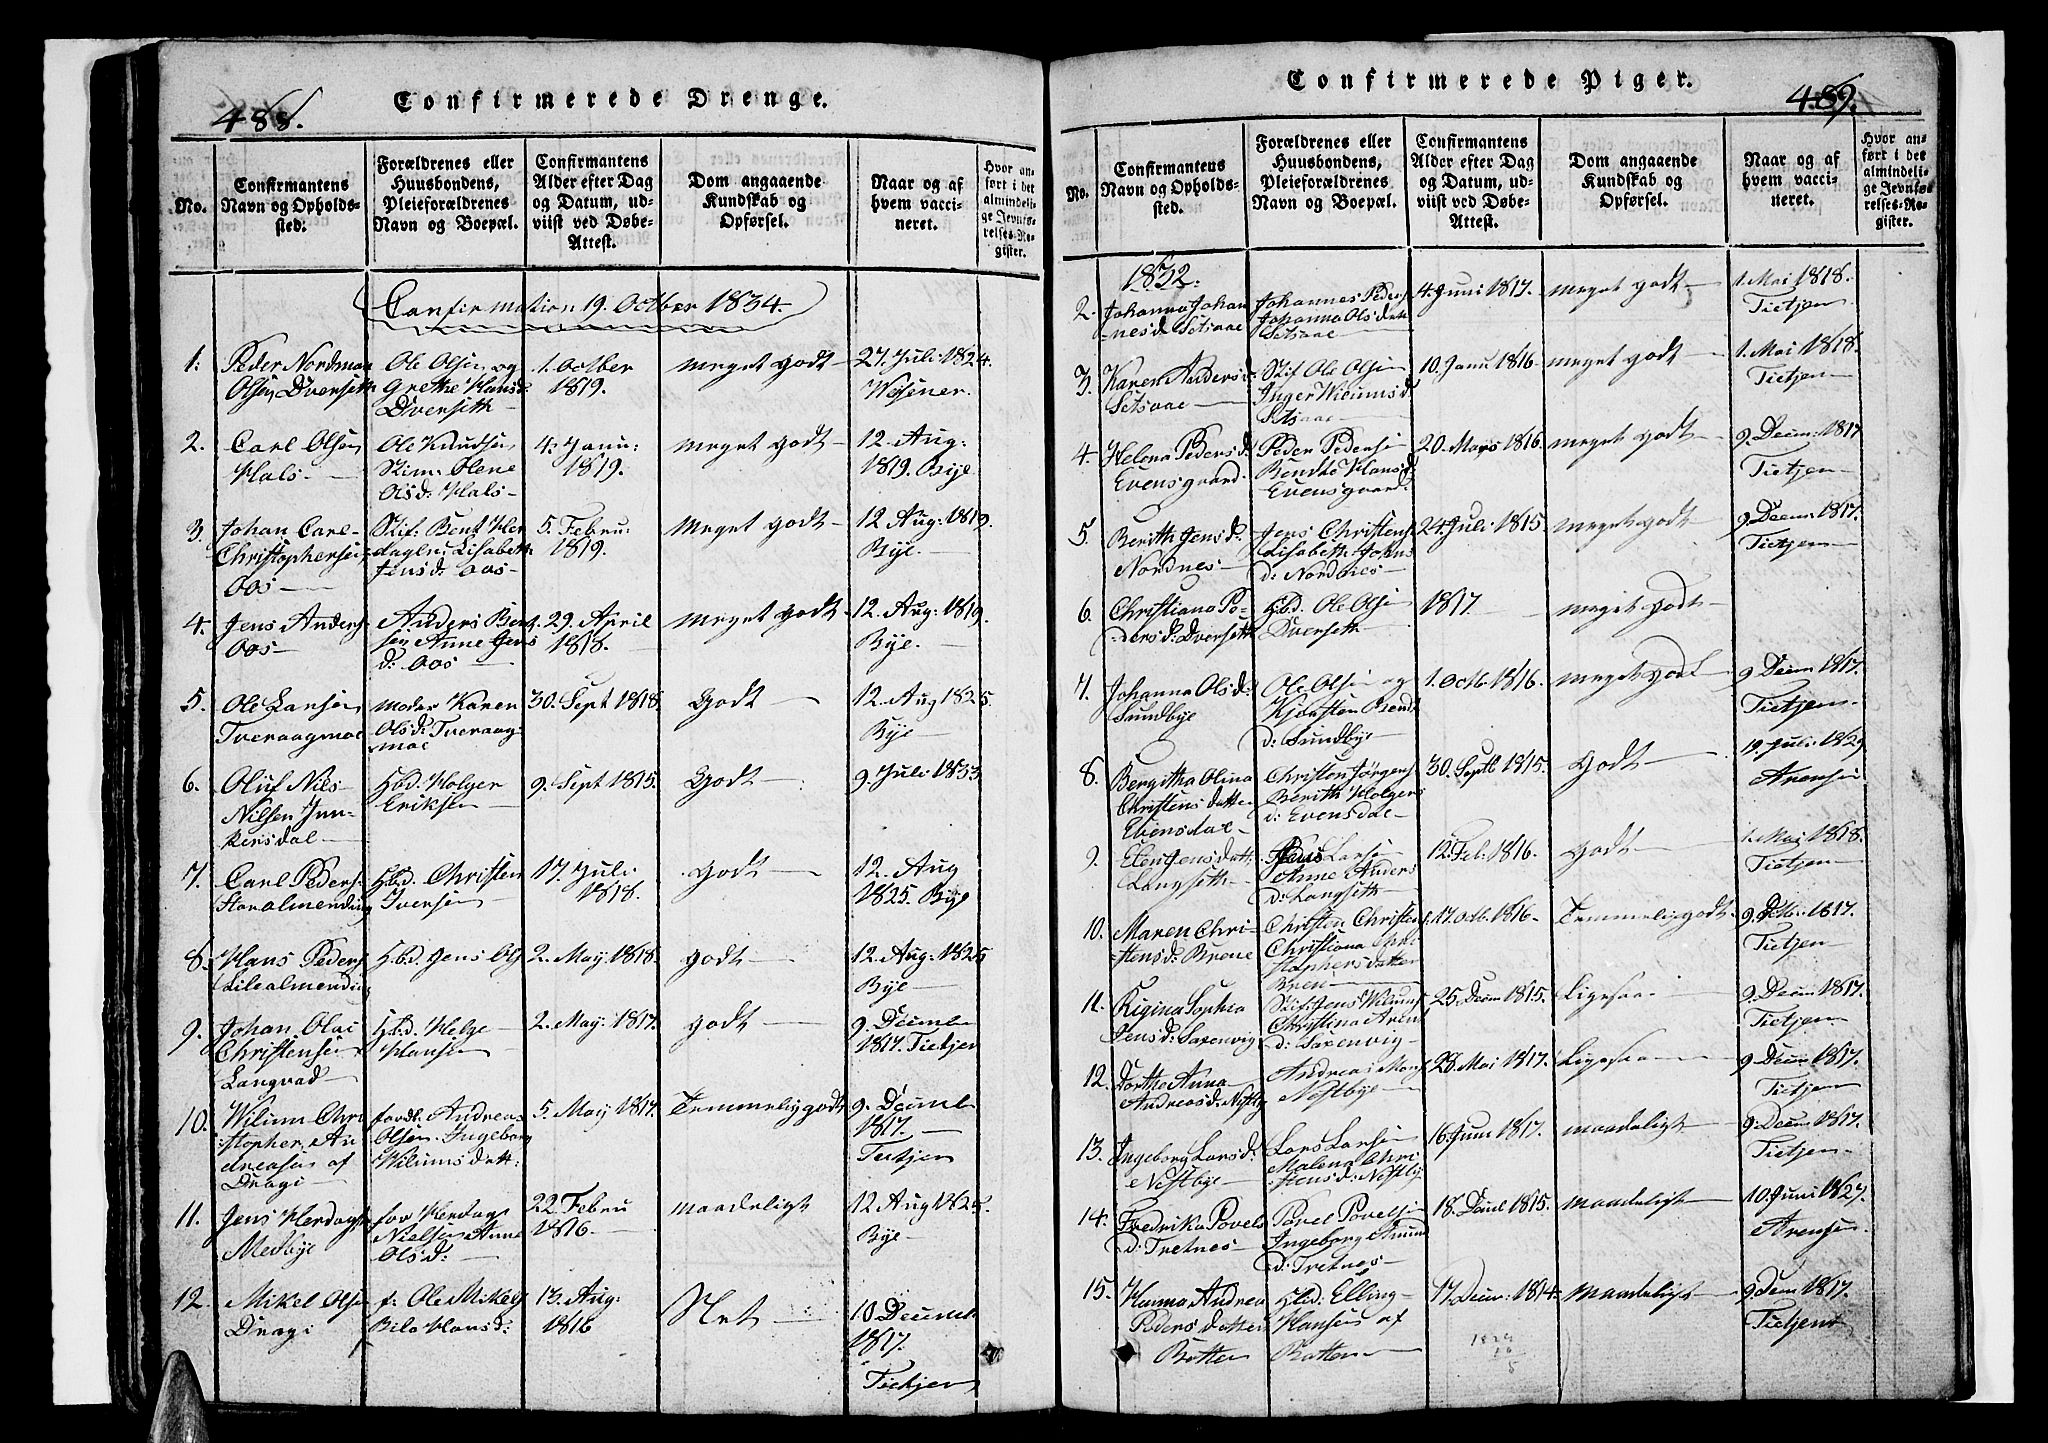 488.
Confirmerede Drenge.
No.
Confirmantens Navn og Opholdssted.
Forældrenes eller Huusbondens, Pleieforældrenes Navn og Boepæl.
Confirmantens Alder efter Dag og Datum, udviist ved Døbe-Attest.
Dom angaaende Kundskab og Opførsel.
Naar og af hvem vaccineret.
Hvor anført i det almindelige Jevnførelses-Register.
Confirmation 19. October 1834.
1. Peder Nordman Ole Olsen og 1. October meget godt 27. Juli 1824.
Olsen Dverseth Grethe Hansd. 1819. Wesener.
Dverseth
2. Carl Olsen Ole Knudsen 4. Janu: meget godt 12 Aug:
Hals Olene 1819. 1819. Bye
Olsd: Hals
3. Johan Carl Stif: Bent Her 5. Febru: meget godt 12 Aug: 1819.
Christophersen dagsen Lisabeth 1819. Bye.
Oos Jensd: Oos
4. Jens Anders Anders Bent 29. April meget godt 12. Aug: 1819.
Oos sen Anne Jens 1818. Bye.
d: Oos
5. Ole Larsen moder Karen 30. Sept 1818. Godt 12. Aug 1825
Tveraagmoe Olsd: Tveraag Bye
moe
6. Oluf Nils Hbd: Holger 9. Sept 1815. Godt 9 Juli 1833
Nilsen Jun- Eriksen
kersdal
7. Carl Peders Hbd: Christen 17. Juli godt 12. Aug
Storalmending Iversen 1818. 1825. Bye
8. Hans Peders Hbd: Jens Ols 2. May 1818. godt 12 Aug: 1825
Lilealmending Bye
9. Johan Olai Hbd: Helge 2. May 1817. godt 9. Decembr
Christensen Hansen 1817. Tietjen
Langvad
10. Wilum Chri Andreas 5. May 1817. Temmelig godt 9. Decembr
stopher An Olsen Ingeborg 1817.
dreasen af Wilumsdatt: Tietjen
Dragi
11. Jens Herdags for Herdag 22. Febru maadeligt 12 Aug 1825.
Medbye Nielsen Anne 1816. Bye
Olsd:
12. Mikel Olsen f: Ole Mikels 13. Aug: Slet 10 Decembr
Dragi Hansd: 1816 1817.
Tietjen
Confirmerede Piger.
489.
No.
Confirmantens Navn og Opholdssted.
Forældrenes eller Huusbondens, Pleieforældrenes Navn og Boepæl.
Confirmantens Alder efter Dag og Datum, udviist ved Døbe-Attest.
Dom angaaende Kundskab og Opførsel.
Naar og af hvem vaccineret.
Hvor anført i det almindelige Jevnførelses-Register.
1832.
2. Johanna Johan Johannes Peders 4. Juni 1817. meget godt 1. Mai 1818.
nesd Setsaae Johanna Olsdatt Tietjen
Setsaae
3. Karen Andersd: Stif Ole Olsen 10. Janu 1816. meget godt 1. Mai 1818.
Setsaae Inger Wilumsd Tietjen
Setsaae
4. Helena Pedersd: Peder Pedersen 20. Mars 1816. meget godt 9. Decem: 1817
Evensgaard Hansd Tietjen
Evensgaard
5. Berith Jensd. Jens Christens 24 Juli 1815. meget godt 9. Decem: 1817.
Nordnes Lisabeth Johns Tietjen
d: Nordnes
6. Christiana Pe- Hbd: Ole Olsen 1817. meget godt
dersd: Dverseth Dverseth
7. Johanna Olsd: Ole Olsen og 1. Octb. 1816. meget godt 9 Decem 1817.
Sundbye Tietjen
d: Sundbye
8. Bergitha Olina Christen Jörgens 30. Septb 1815. Godt 19. Juli 1829
Christensdatter Berith Holgers Arensen
Evensdal d: Evensdal
9. Elen Jensdatt: Jens Larsen 12. Feb: 1816. godt 1. Mai 1818.
Langseth Anne Anders Tietjen
d: Langseth
10. Maren Chri- Christen Christen 17. Octb. 1816. Temmelig godt 9. 1817.
stensd: Brene Christiana Chri Tietjen
stophersdatter
Bren
11. Rigina Sophia Stif: Jens Wilums 25. Decem 1815. Ligesaa 9. Decem 1817.
Jensd: Saxenvig Christina Arent Tietjen
d: Saxenvig
12. Dorthe Anna Andreas 28. Mai 1817. Ligesaa 9. Decem 1817.
Andreasd: Nestby Nestbye Tietjen
13. Ingeborg Larsd: Lars Larsen 16. Juni 1817. maadeligt 9. Decem 1817.
Nestbye Malena Chri Tietjen
stensd: Nestby
14. Fredrika Povels Povel Povelsen 18. Decb 1815. maadeligt 10. Juni 1827.
d: Tretnes Ingeborg Amund Arensen
d: Tretnes
15. Hanna Andrea Hbd: Elling 17. Decem: 1814. maadeligt 9 Decem 1817.
Pedersdatter Hansen af Tietjen
Botten Botten